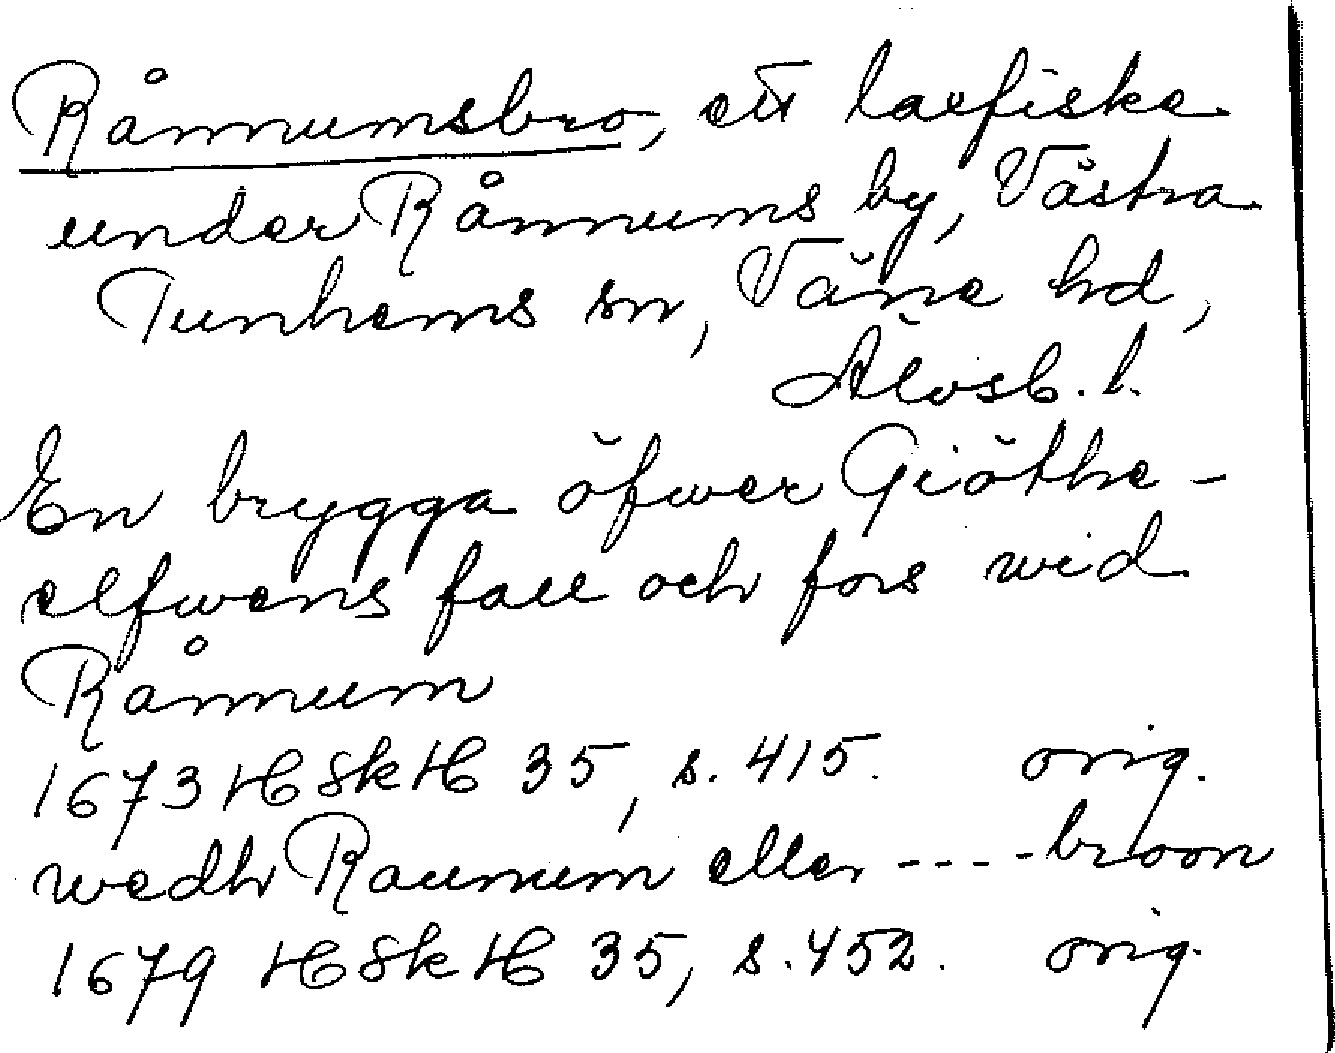 Rånnumsbro, ett laxfiske
under Rånnums by, Västra
Tunhems sn, Väne hd,
Älvsb. l.
En brygga öfwer Giöthe-
elfwens fall och fors wid
Rånnum
1673 HSkH 35, s. 415. orig.
wedh Raunum eller ----broon
1679 HSkH 35, s. 452. orig.